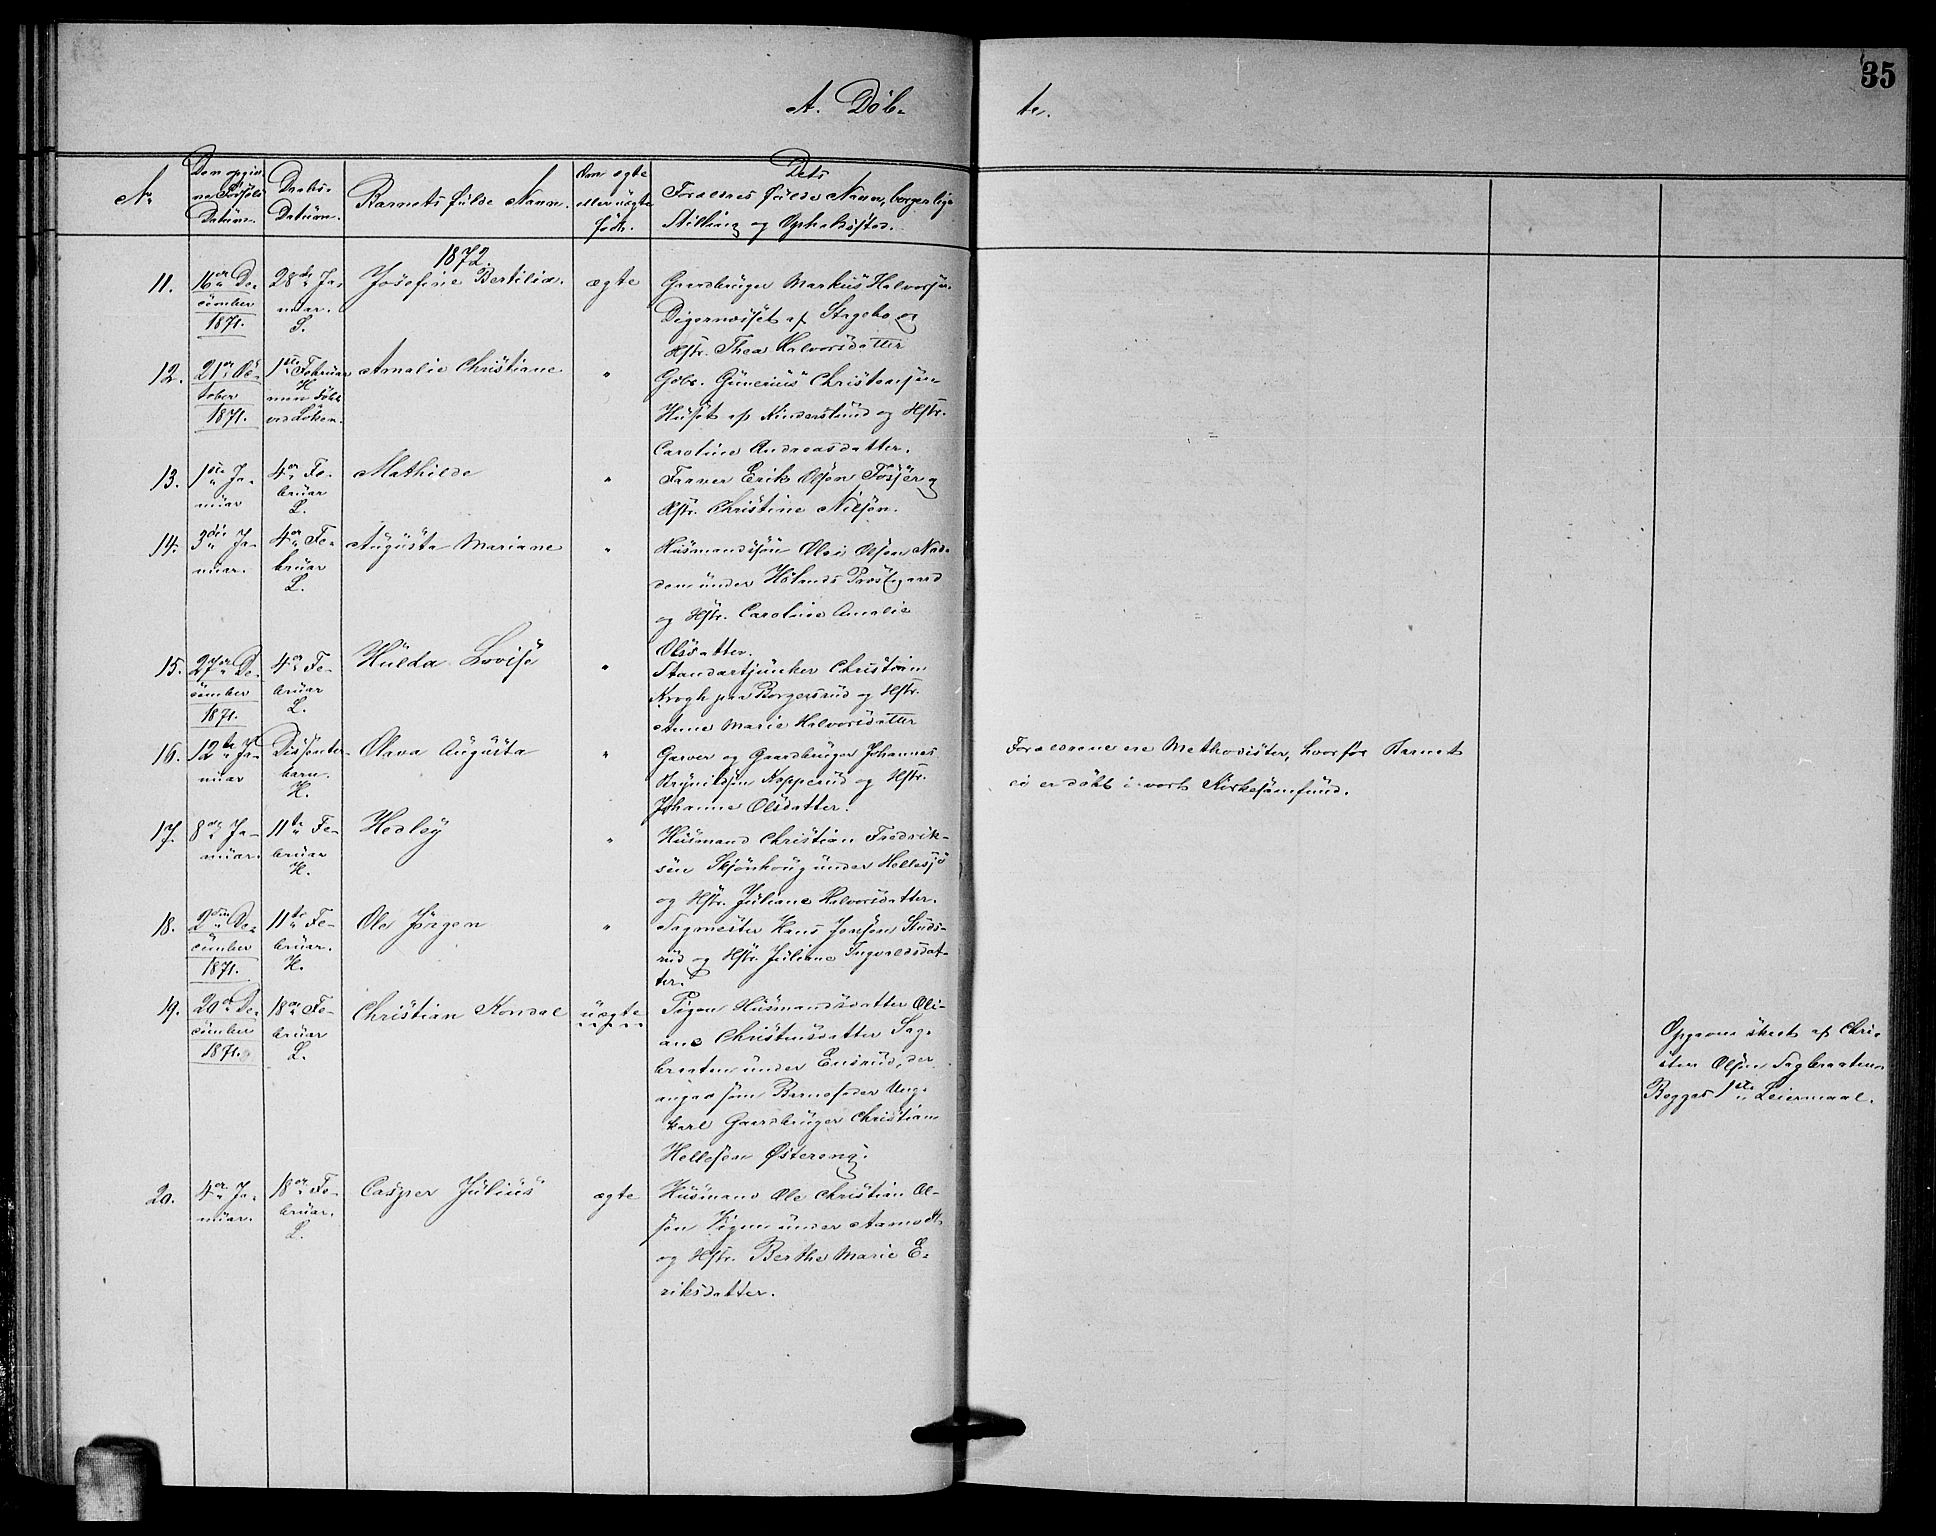 35
A. Døb-
te.
No
Den opgiv-
ne Fødsels
Datum.
Daabs-
Datum.
Barnets fulde Navn.
Om egte
eller uegte
født.
Dets
Forældres fulde Navn, borgerlige
Stilling og Opholdssted.
1872.
11.
16de De-
cember
1871.
28de Ja-
nuar.
L.
Josefine Bertilia.
ægte
Gaardbruger Markus Halvorsen
Digernæsset af Stegebo og
Hstr. Thea Halvorsdatter
12.
21de Oc-
tober
1871.
1ste Februar
H
men døbt
ved Løken.
Amalie Christiane
"
Gbr. Gunerius Christensen
Huset af Kinderslund og Hstr.
Caroline Andreasdatter.
13.
1ste Ja-
nuar
4de Fe-
bruar
L.
Mathilde
"
Farver Erik Olsen Fosser og
Hstr. Christine Nilsen.
14.
3die Ja-
nuar.
4de Fe-
bruar
L.
Augusta Mariane
"
Husmandssøn Olai Olsen Nad-
den under Hølands Præstegaard
og Hstr. Caroline Amalie
Olsdatter.
15.
27de De-
cember
1871.
4de Fe-
bruar
L.
Hulda Lovise
"
Standartjunker Christian
Krogh paa Borgersrud og Hstr.
Anne Marie Halvorsdatter
16.
12te Ja-
nuar
Dissenter-
barn.
H.
Olava Augusta
"
Garver og Gaardbruger Johannes
Brynildsen Kopperud og Hstr.
Johanne Olsdatter.
Forældrene ere Methodister, hvorfor Barnet
ei er døbt i vort Kirkesamfund.
17.
8de Ja-
nuar.
11te Fe-
bruar
H.
Hedley
"
Husmand Christian Fredrik-
sen Skjønhoug under Hellesjø
og Hstr. Juliane Halvorsdatter.
18.
2den De-
cember
1871.
11te Fe-
bruar.
H.
Ole Jørgen
"
Sagmester Hans Jensen Studs-
rud og Hstr. Juliane Ingvaldsdat-
ter.
19.
20de De-
cember
1871.
18de Fe-
bruar
L.
Christian Kondal
uægte
Pigen Husmandsdatter Oli-
ane Christensdatter Sag-
braaten under Ensrud, der
angav som Barnefader Ung-
karl Gaardbruger Christian
Hellesen Østereng.
Opgaven skeet af Chri-
sten Olsen Sagbraaten.
Begges 1ste Leiermaal.
20.
4de Ja-
nuar.
18de Fe-
bruar.
L.
Casper Julius
ægte
Husmand Ole Christian Ol-
sen Vigen under Aamodt
og Hstr. Berthe Marie E-
riksdatter.